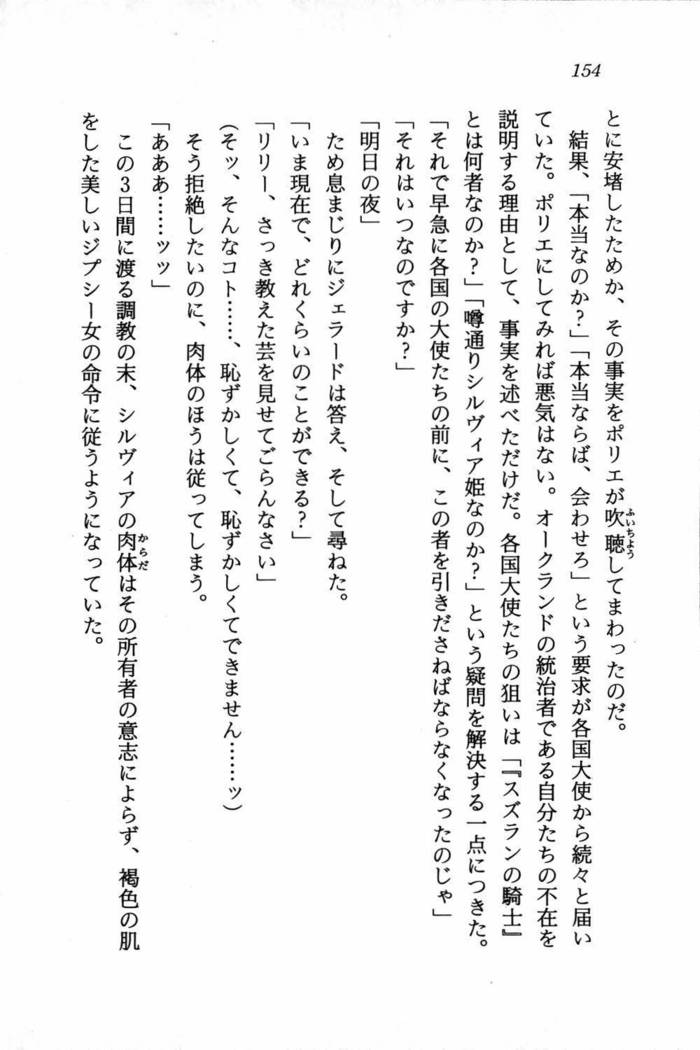 154
とに安堵したためか、その事実をポリエが吹聴してまわったのだ。
ふいちよう
　結果、「本当なのか？」「本当ならば、会わせろ」という要求が各国大使から続々と届い
ていた。ポリエにしてみれば悪気はない。オークランドの統治者である自分たちの不在を
説明する理由として、事実を述べただけだ。各国大使たちの狙いは「『スズランの騎士』
とは何者なのか？」「噂通りシルヴィア姫なのか？」という疑問を解決する一点につきた。
「それで早急に各国の大使たちの前に、この者を引きださねばならなくなったのじゃ」
「それはいつなのですか？」
「明日の夜」
　ため息まじりにジェラードは答え、そして尋ねた。
「いま現在で、どれくらいのことができる？」
「リリー、さっき教えた芸を見せてごらんなさい」
（そッ、そんなコト……、恥ずかしくて、恥ずかしくてできません……ッ）
　そう拒絶したいのに、肉体のほうは従ってしまう。
「あああ……ッッ」
　この３日間に渡る調教の末、シルヴィアの肉体はその所有者の意志によらず、褐色の肌
からだ
をした美しいジプシー女の命令に従うようになっていた。